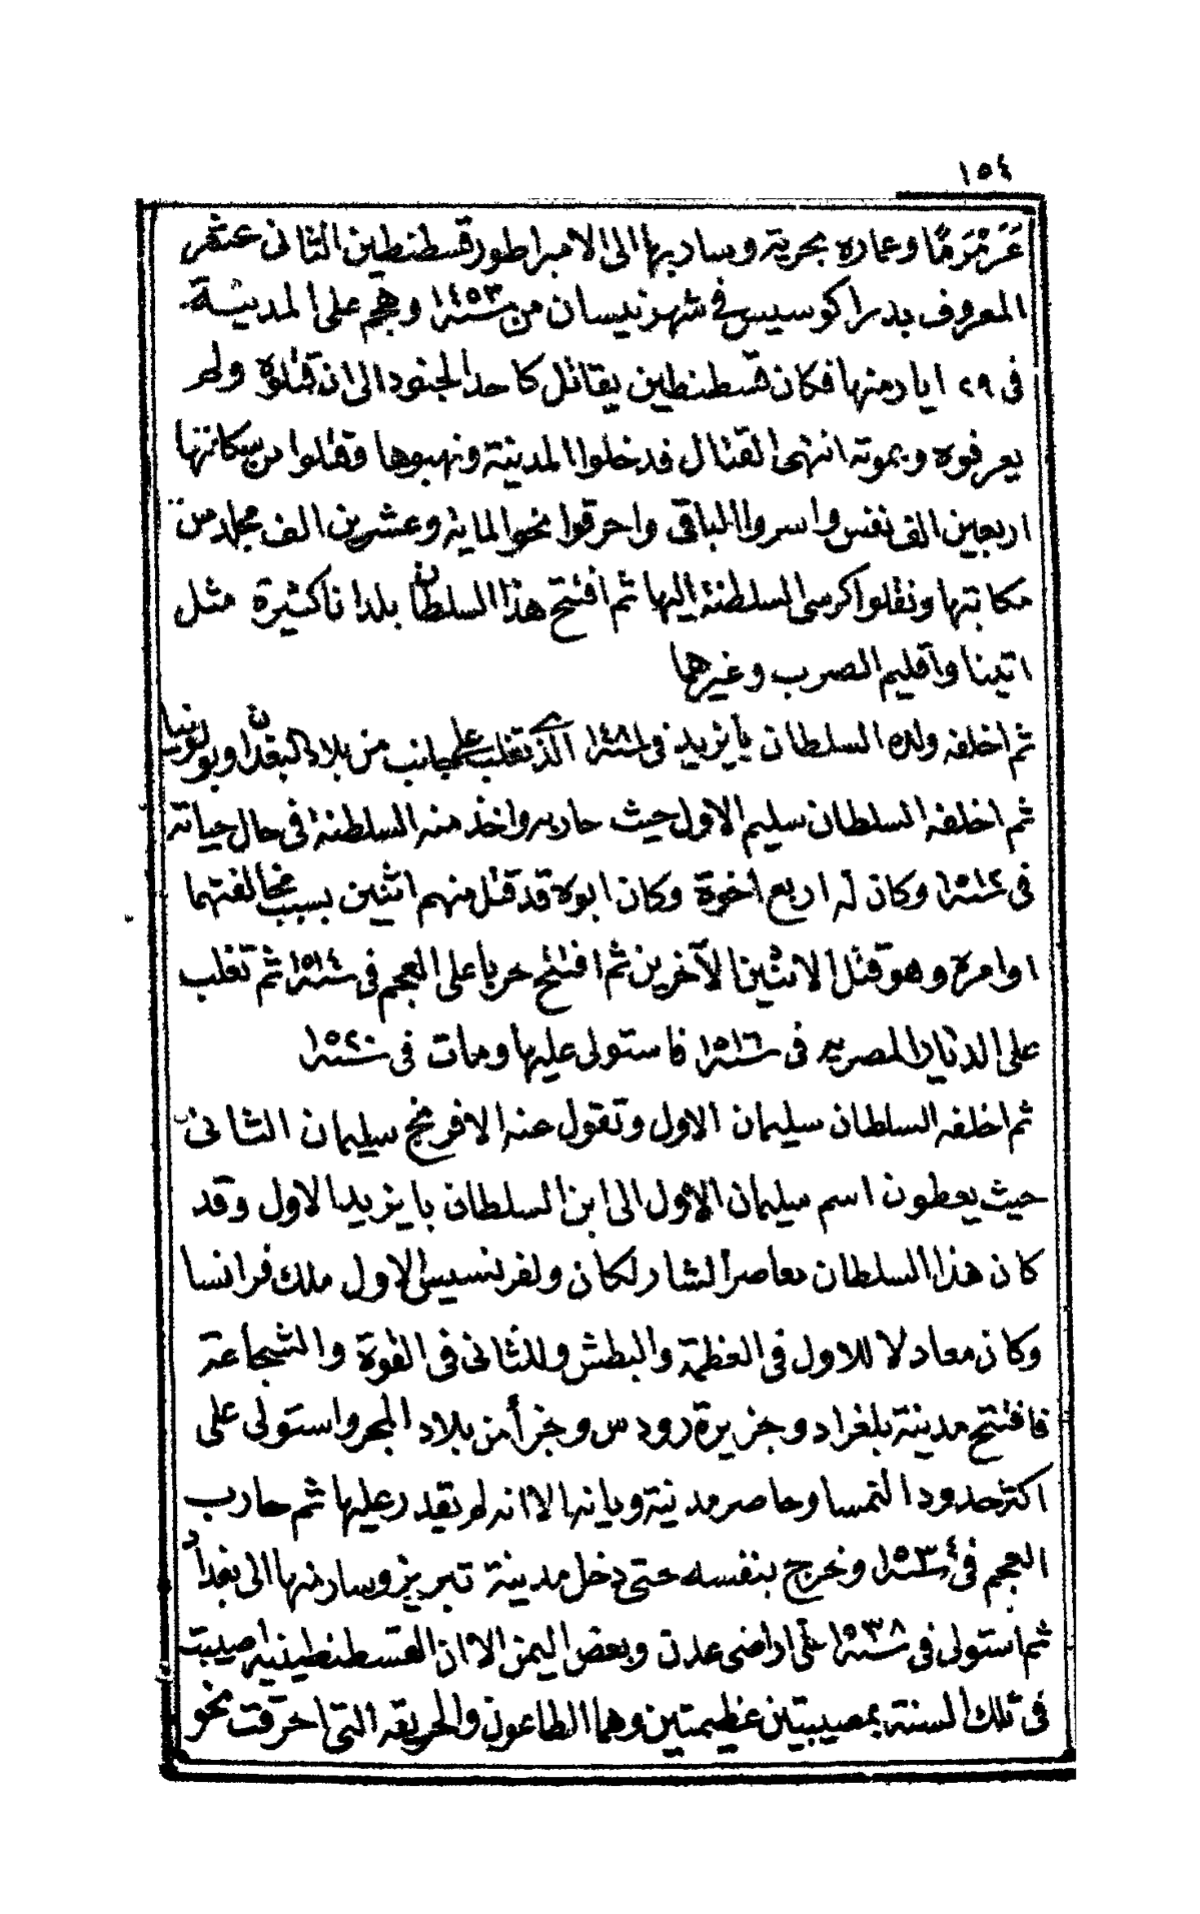 ١٥٤
عَرَمْرَمًا وعماره بحرية وسار بها الى الامبراطور قسطنطين الثانى عشر
المعروف بدراكوسيس فى شهر نيسان من سنة ١٤٥٣ وهجم على المدينة
فى ٢٩ ايار منها فكان قسطنطين يقاتل كاحد الجنود الى ان قتلوه ولم
يعرفوه وبموته انتهى القتال فدخلوا المدينة ونهبوها وقتلوا من سكانها
اربعين الف نفس واسروا الباقى واحرقوا نحو الماية وعشرين الف مجلد من
مكاتبها ونقلوا كرسى السلطنة اليها ثم افتتح هذا السلطان بلدانا كثيرة مثل
اتينا واقليم الصرب وغيرهما
ثم اخلفه ولده السلطان بايزيد فى سنة ١٤٨١ الذى تغلب على جانب من بلاد البغدان وبولونيا
ثم اخلفه السلطان سليم الاول حيث حاربه واخذ منه السلطنة فى حال حياته
فى سنة ١٥١٢ وكان له اربع اخوة وكان ابوه قد قتل منهم اثنين بسبب مخالفتهما
اوامره وهو قتل الاثنين الآخرين ثم افتتح حربا على العجم فى سنة ١٥١٤ ثم تغلب
على الديار المصريه فى سنة ١٥١٦ فاستولى عليها ومات فى سنة ١٥٢٠
ثم اخلفه السلطان سليمان الاول وتقول عنه الافرنج سليمان الثانى
حيث يعطون اسم سليمان الاول الى ابن السلطان بايزيد الاول وقد
كان هذا السلطان معاصرا لشارلكان ولفرنسيس الاول ملك فرانسا
وكان معادلا للاول فى العظمة والبطش وللثانى فى القوة والشجاعة
فافتتح مدينة بلغراد وجزيرة رودس وجزأ من بلاد المجر واستولى على
اكثر حدود النمسا وحاصر مدينة ويانها الا انه لم يقدر عليها ثم حارب
العجم فى سنة ١٥٣٤ وخرج بنفسه حتى دخل مدينة تبريز وسار منها الى بغداد
ثم استولى فى سنة ١٥٣٨ على اراضى عدن وبعض اليمن الا ان القسطنطينيه اصيبت
فى تلك السنة بمصيبتين عظيمتين وهما الطاعون والحريقه التى احرقت نحو